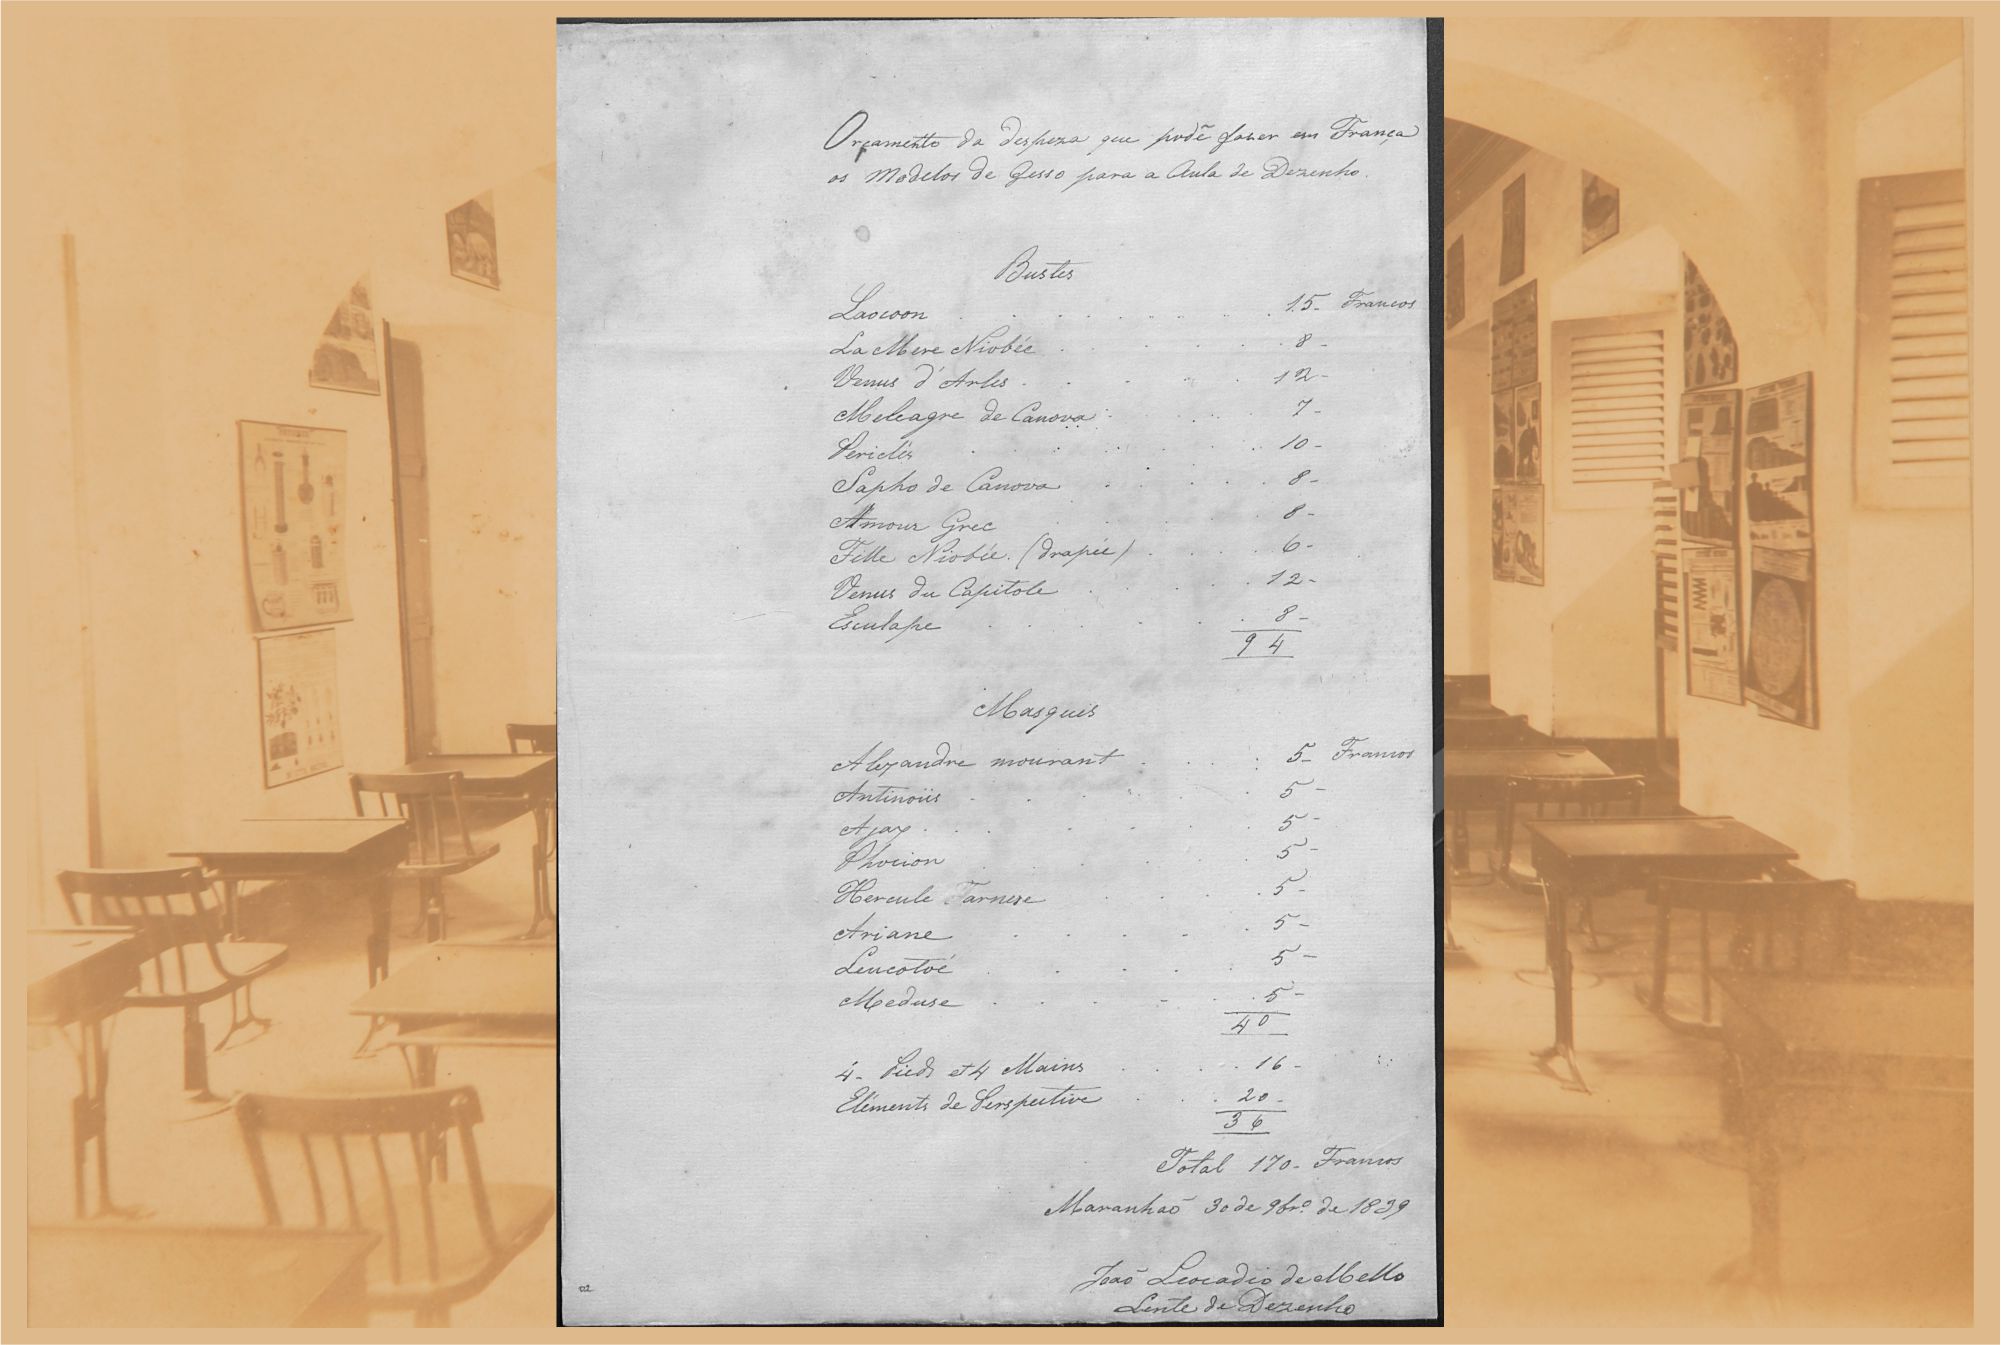 Orçamento da despeza que podẽ fazer em França
os Modelos de Gesso para a Aula de Dezenho.
Bustes
Laocoon . . . . . . . . 15- Francos
La Mere Niobée . . . . . 8-
Venus d'Arles . . . . . 12-
Meleagre de Canova . . . 7-
Periclés . . . . . 10-
Sapho de Canova . . . . 8-
Amour Grec . . . . 8-
Fille Niobée. (drapée) . . . . 6-
Venus du Capitole . . . . 12-
Esculape . . . . . . 8-
94
Masques
Alexandre mourant . . . . 5- Francos
Antinoüs . . . . . . 5-
Ajax . . . . . 5-
Phocion . . . . . 5-
Hercule Farnese . . . . 5-
Ariane . . . . . 5-
Leucotoé . . . . . 5-
Meduse . . . . . . 5-
40
4- Pieds et 4 Mains . . . . . 16-
Eléments de Perspective . . . 20-
36
Total 170- Francos
Maranhaõ 30 de 9brº de 1839
Joaõ Leocadio de Mello
Lente de Dezenho